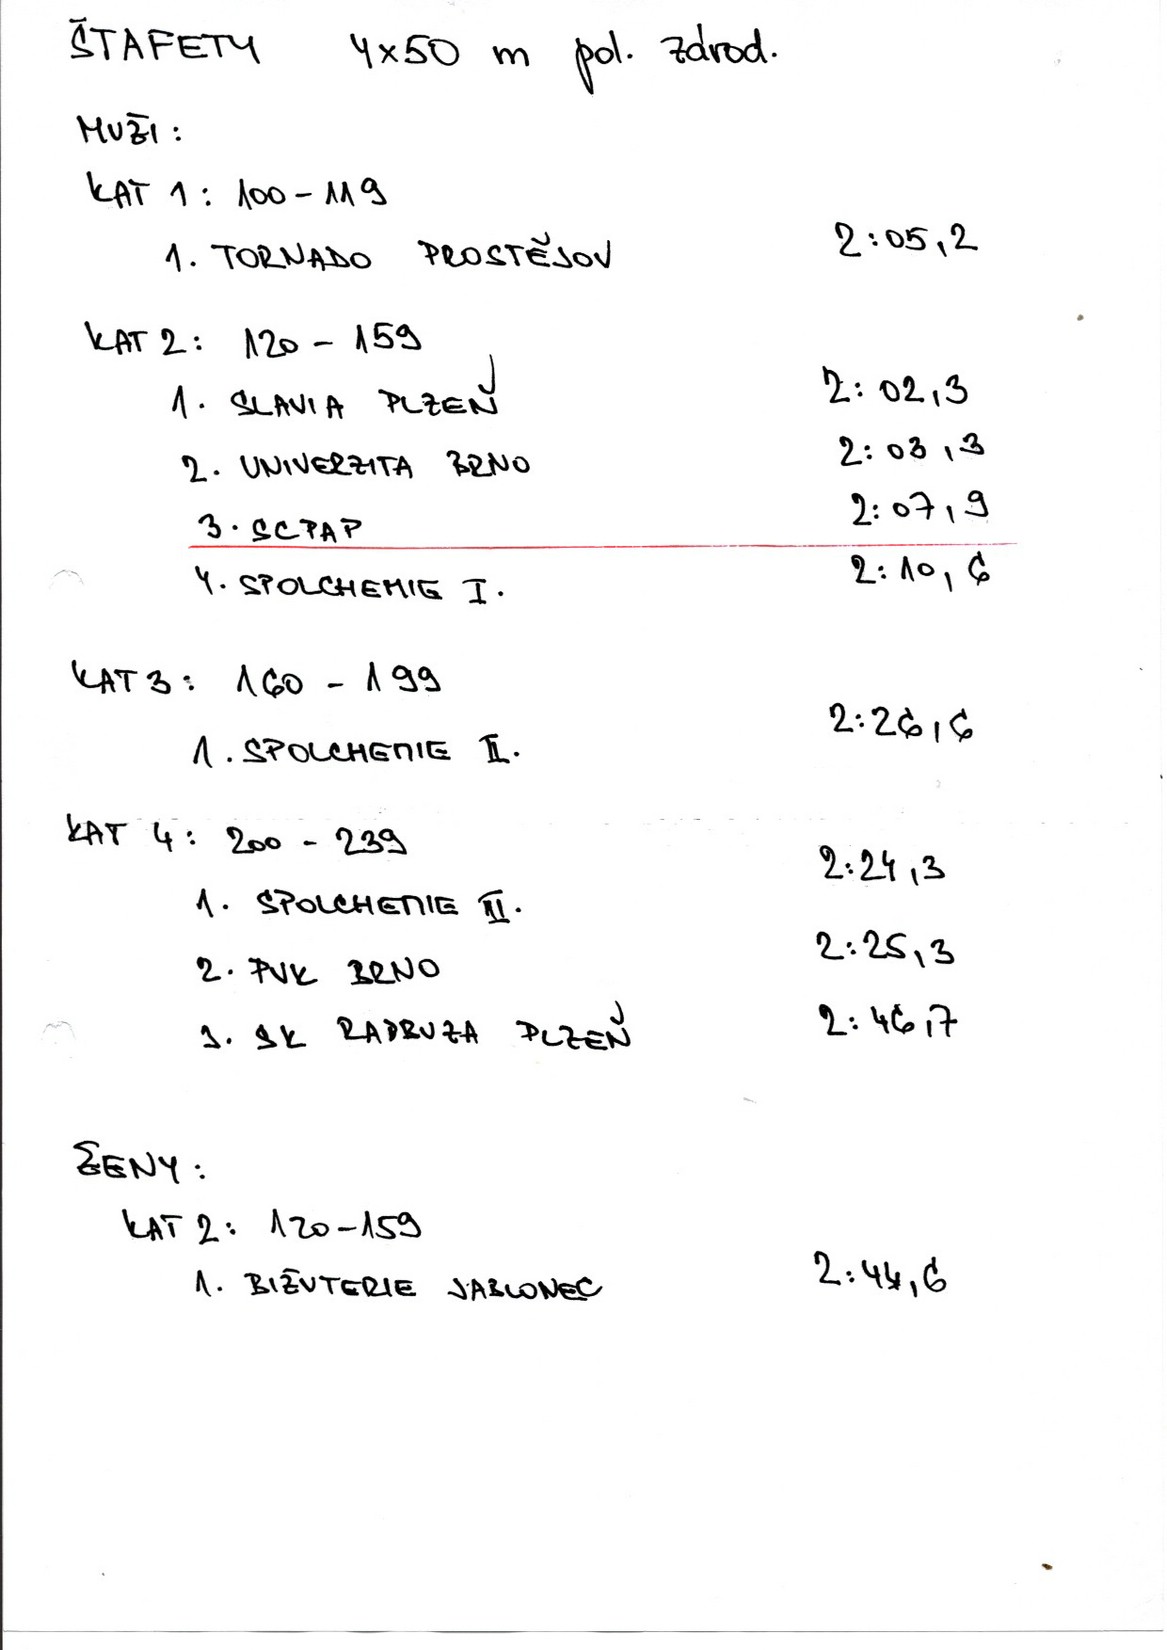 ŠTAFETY 4x50 m pol. závod.
MUŽI:
KAT 1: 100-119
1. TORNADO PROSTĚJOV 2:05,2
KAT 2: 120-159
1. SLAVIA PLZEŇ 2:02,3
2. UNIVERZITA BRNO 2:03,3
3. SCPAP 2:07,9
4. SPOLCHEMIE I. 2:10,6
KAT 3: 160-199
1. SPOLCHEMIE II. 2:26,6
KAT 4: 200-239
1. SPOLCHEMIE III. 2:24,3
2. PVK BRNO 2:25,3
3. SK RADBUZA PLZEŇ 2:46,7
ŽENY:
KAT 2: 120-159
1. BIŽUTERIE JABLONEC 2:44,6